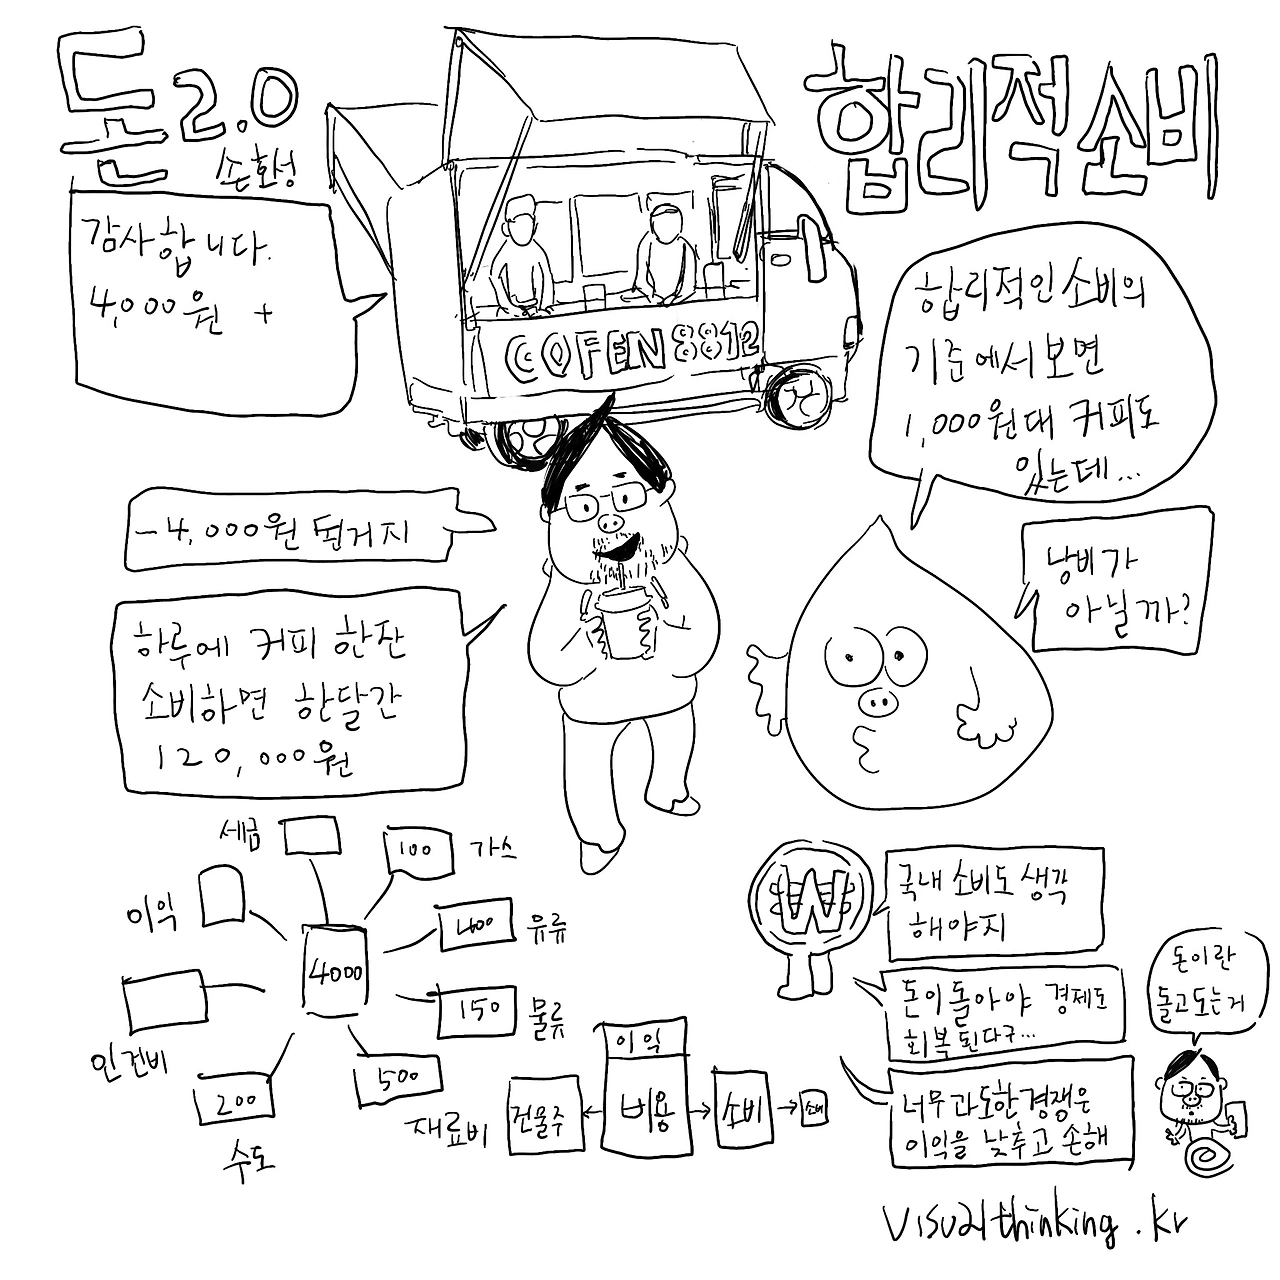 돈 2.0
손화성
합리적 소비
감사합니다.
4,000원 +
COFEN 8812
합리적인 소비의
기준에서 보면
1,000원대 커피도
있는데...
-4,000원 된거지
낭비가
아닐까?
하루에 커피 한잔
소비하면 한달간
120,000원
세금
100 가스
이익
400 유류
4000
150 물류
인건비
200
수도
500
재료비
건물주
이익
비용
소비
소비
W
국내 소비도 생각
해야지
돈이 돌아야 경제도
회복된다구...
너무 과도한 경쟁은
이익을 낮추고 손해
돈이란
돌고 도는 거
visualthinking.kr